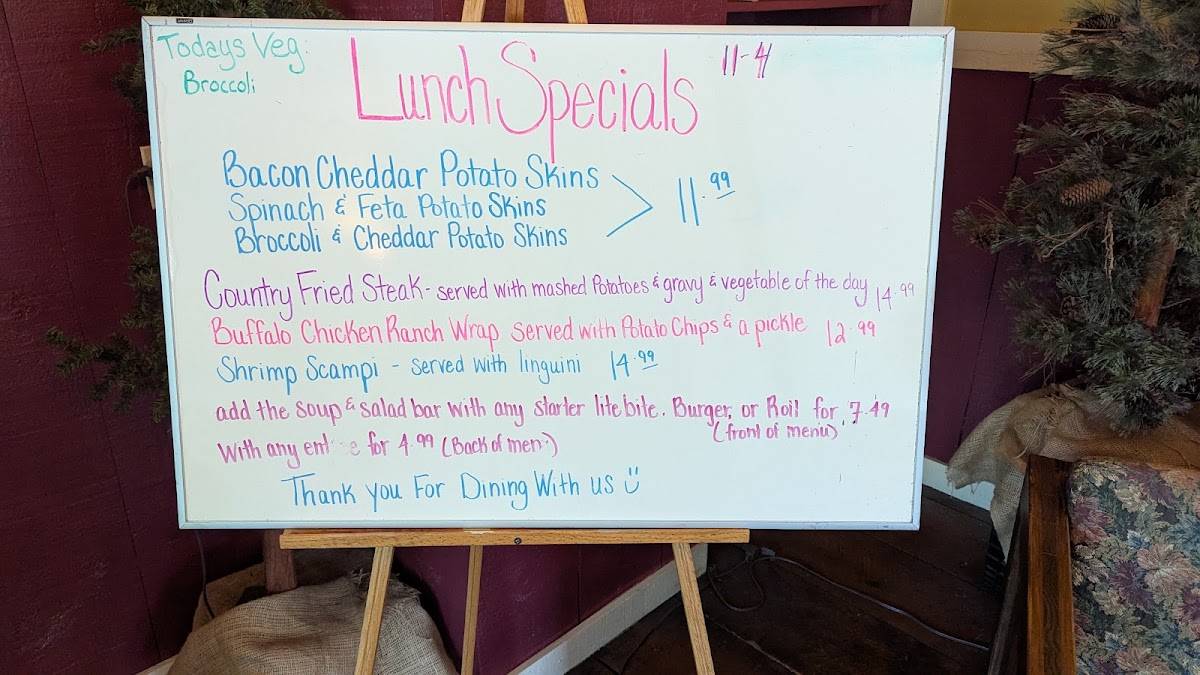 Todays Veg:
Broccoli
Lunch Specials 11-4
Bacon Cheddar Potato Skins
Spinach & Feta Potato Skins > 11.99
Broccoli & Cheddar Potato Skins
Country Fried Steak - served with mashed Potatoes & gravy & vegetable of the day 14.99
Buffalo Chicken Ranch Wrap served with Potato Chips & a pickle 12.99
Shrimp Scampi - served with linguini 14.99
add the soup & salad bar with any starter lite bite. Burger, or Roll for 7.49
(front of menu)
With any for 4.99 (Back of men)
Thank you For Dining With us